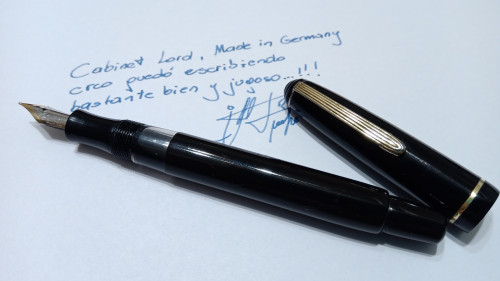 Cabinet Lord, Made in Germany
creo quedó escribiendo
bastante bien y jugoso...!!!